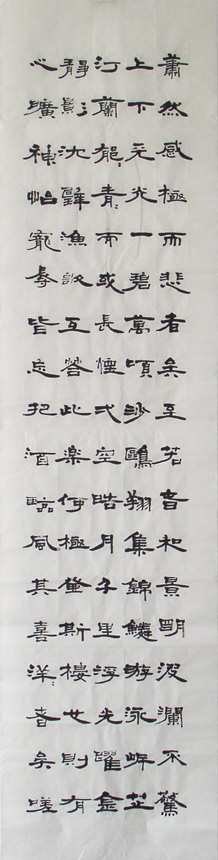 蕭然感極而悲者矣至若春和景明波瀾不驚
上下天光一碧萬頃沙鷗翔集錦鱗游泳岸芷
汀蘭郁々青々而或長煙弌空皓月千里浮光躍金
靜影沈璧漁歌互答此楽何極登斯樓也則有
心曠神怡寵辱皆忘把酒臨風其喜洋々者矣嗟